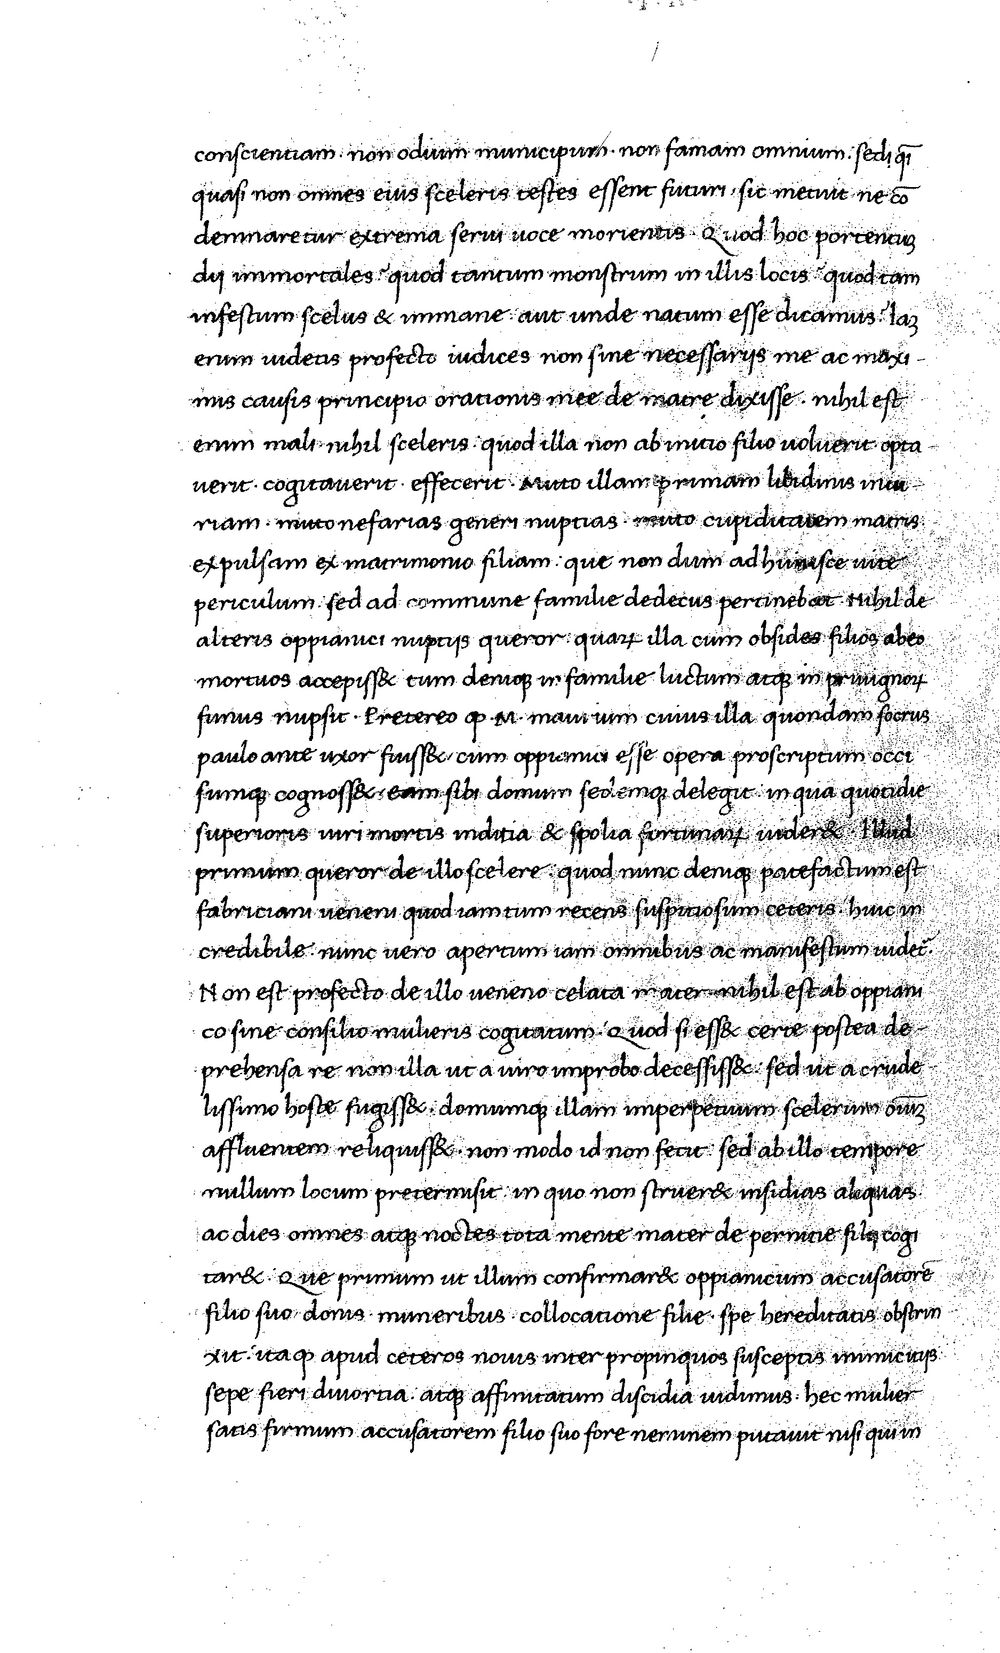 conscientiam · non odium municipum · non famam omnium · sed, qi̅
quasi non omnes eius sceleris testes essent futuri · sic metuit ne co̅
demnaretur extrema serui uoce morientis · Quod hoc portentuʒ
dij immortales? quod tantum monstrum in illis locis? quod tam
infestum scelus & immane · aut unde natum esse dicamus? Iaʒ
enim uidetis profecto iudices non sine necessarijs me ac maxi-
mis causis principio orationis mee de matre dixisse · nihil est
enim mali · nihil sceleris · quod illa non ab initio filio uoluerit · opta
uerit · cogitauerit · effecerit · Mitto illam primam libidinis iniu-
riam · mitto nefarias generi nuptias · mitto cupiditatem matris
expulsam ex matrimonio filiam · que non dum ad huiusce uite
periculum · sed ad commune familie dedecus pertinebat · Nihil de
alteris oppianici nuptijs queror · quaꝝ illa cum obsides filios ab eo
mortuos accepiss& tum deniqꝫ in familie luctum atqꝫ in priuignoꝝ
funus nupsit · Pretereo ꝙ M. maui ium cuius illa quondam socrus
paulo ante uxor fuiss& · cum oppianici esse opera proscriptum occi
sumqꝫ cognoss& · eam sibi domum sedemqꝫ delegit · in qua quotidie
superioris uiri mortis inditia & spolia fortunaꝝ uider& · Illud
primum queror de illo scelere · quod nunc deniqꝫ patefactum est
fabriciani ueneni quod iam tum recens suspitiosum ceteris · huic in
credibile · nunc uero apertum iam omnibus ac manifestum uidet̅ ·
Non est profecto de illo ueneno celata mater · nihil est ab oppiani
co sine consilio mulieris cogitatum · Quod si ess& certe postea de-
prehensa re non illa ut a uiro improbo decessiss& · sed ut a crude-
lissimo hoste fugiss& · domumqꝫ illam imperpetuum scelerum oi̅uʒ
affluentem reliquiss& · non modo id non fecit · sed ab illo tempore
nullum locum pretermisit · in quo non struer& insidias aliquas
ac dies omnes atqꝫ noctes tota mente mater de pernitie filij cogi
tar& · Que primum ut illum confirmar& oppianicum accusatore̅
filio suo · donis · muneribus · collocatione filie · spe hereditatis obstrin
xit · itaqꝫ apud ceteros nouis inter propinquos susceptis inimicitijs
sepe fieri diuortia · atqꝫ affinitatum discidia uidimus · hec mulier
satis firmum accusatorem filio suo fore neminem putauit nisi qui in